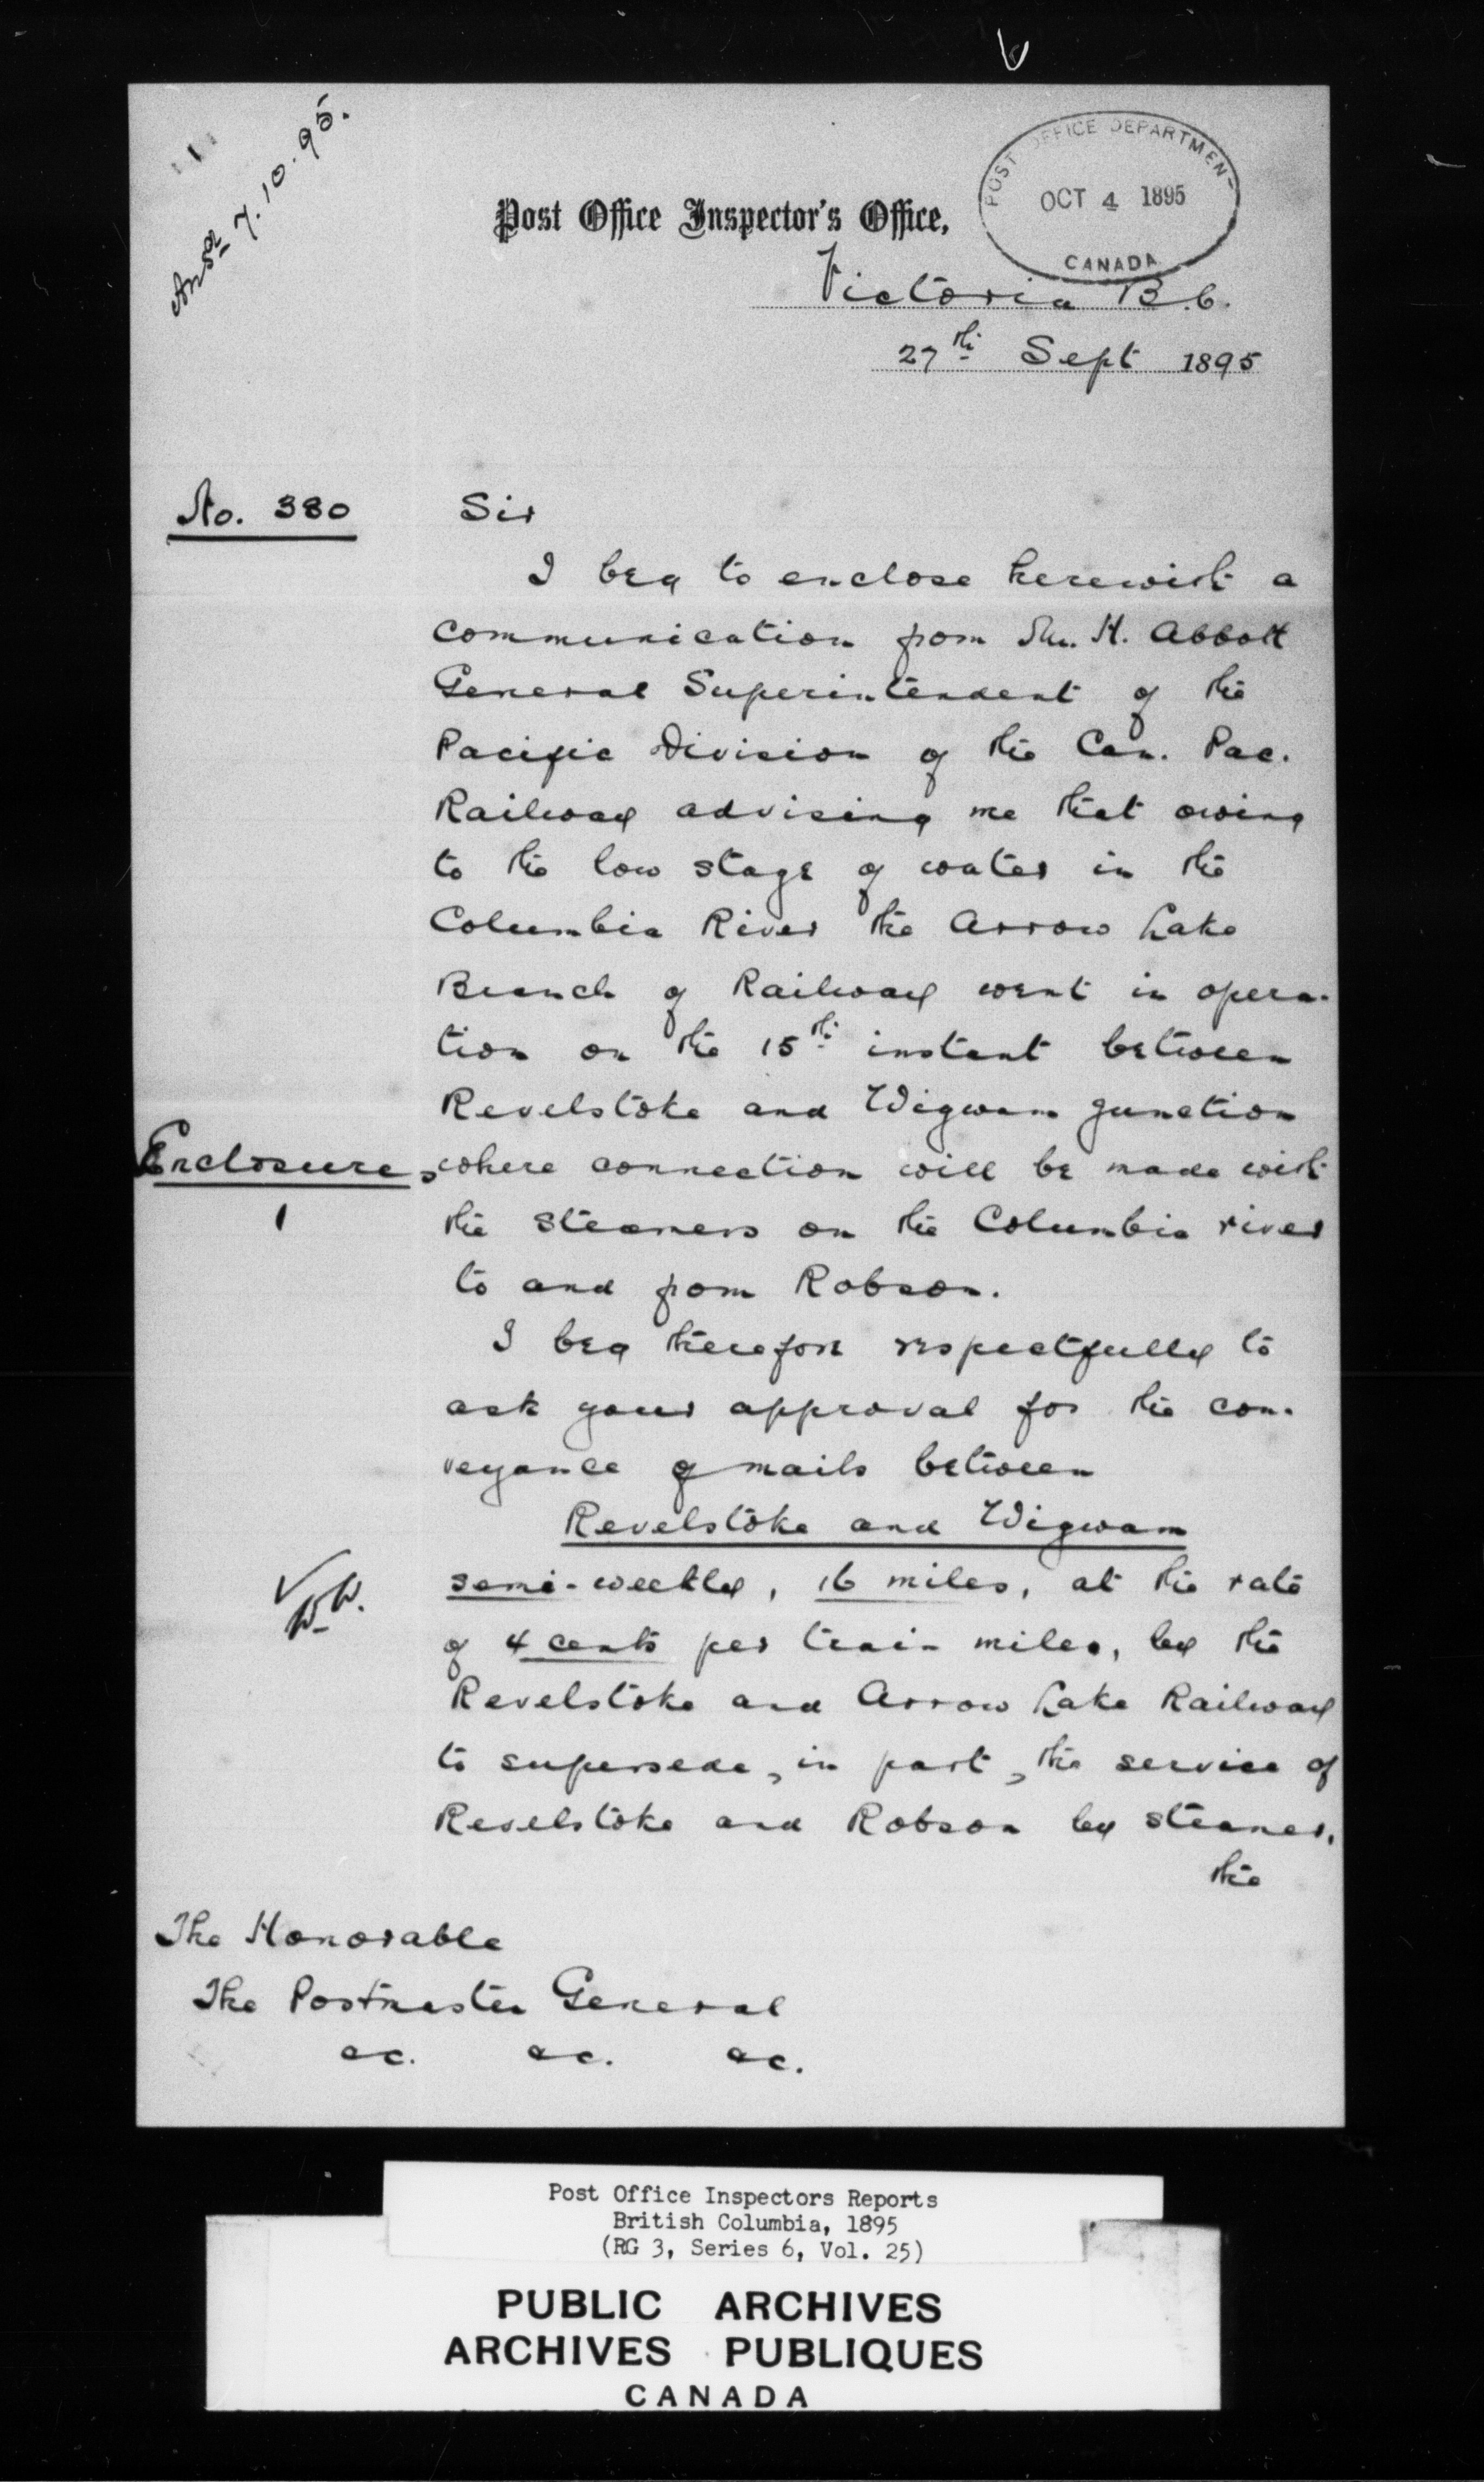 Ansd 7.10.95.
POST OFFICE DEPARTMENT
OCT 4 1895
CANADA
Post Office Inspector's Office,
Victoria B.C.
27th Sept 1895
No. 380
Sir
I beg to enclose herewith a
communication from Mr. H. Abbott
General Superintendent of the
Pacific Division of the Can. Pac.
Railway advising me that owing
to the low stage of water in the
Columbia River the Arrow Lake
Branch of Railway went in opera-
tion on the 15th instant between
Revelstoke and Wigwam Junction
Enclosure,
1
where connection will be made with
the steamers on the Columbia river
to and from Robson.
I beg therefore respectfully to
ask your approval for the con-
veyance of mails between
Revelstoke and Wigwam
semi-weekly, 16 miles, at the rate
of 4 cents per train miles, by the
Revelstoke and Arrow Lake Railway
to supersede, in part, the service of
Revelstoke and Robson by steamer,
the
The Honorable
The Postmaster General
&c. &c. &c.
Post Office Inspectors Reports
British Columbia, 1895
(RG 3, Series 6, Vol. 25)
PUBLIC ARCHIVES
ARCHIVES PUBLIQUES
CANADA